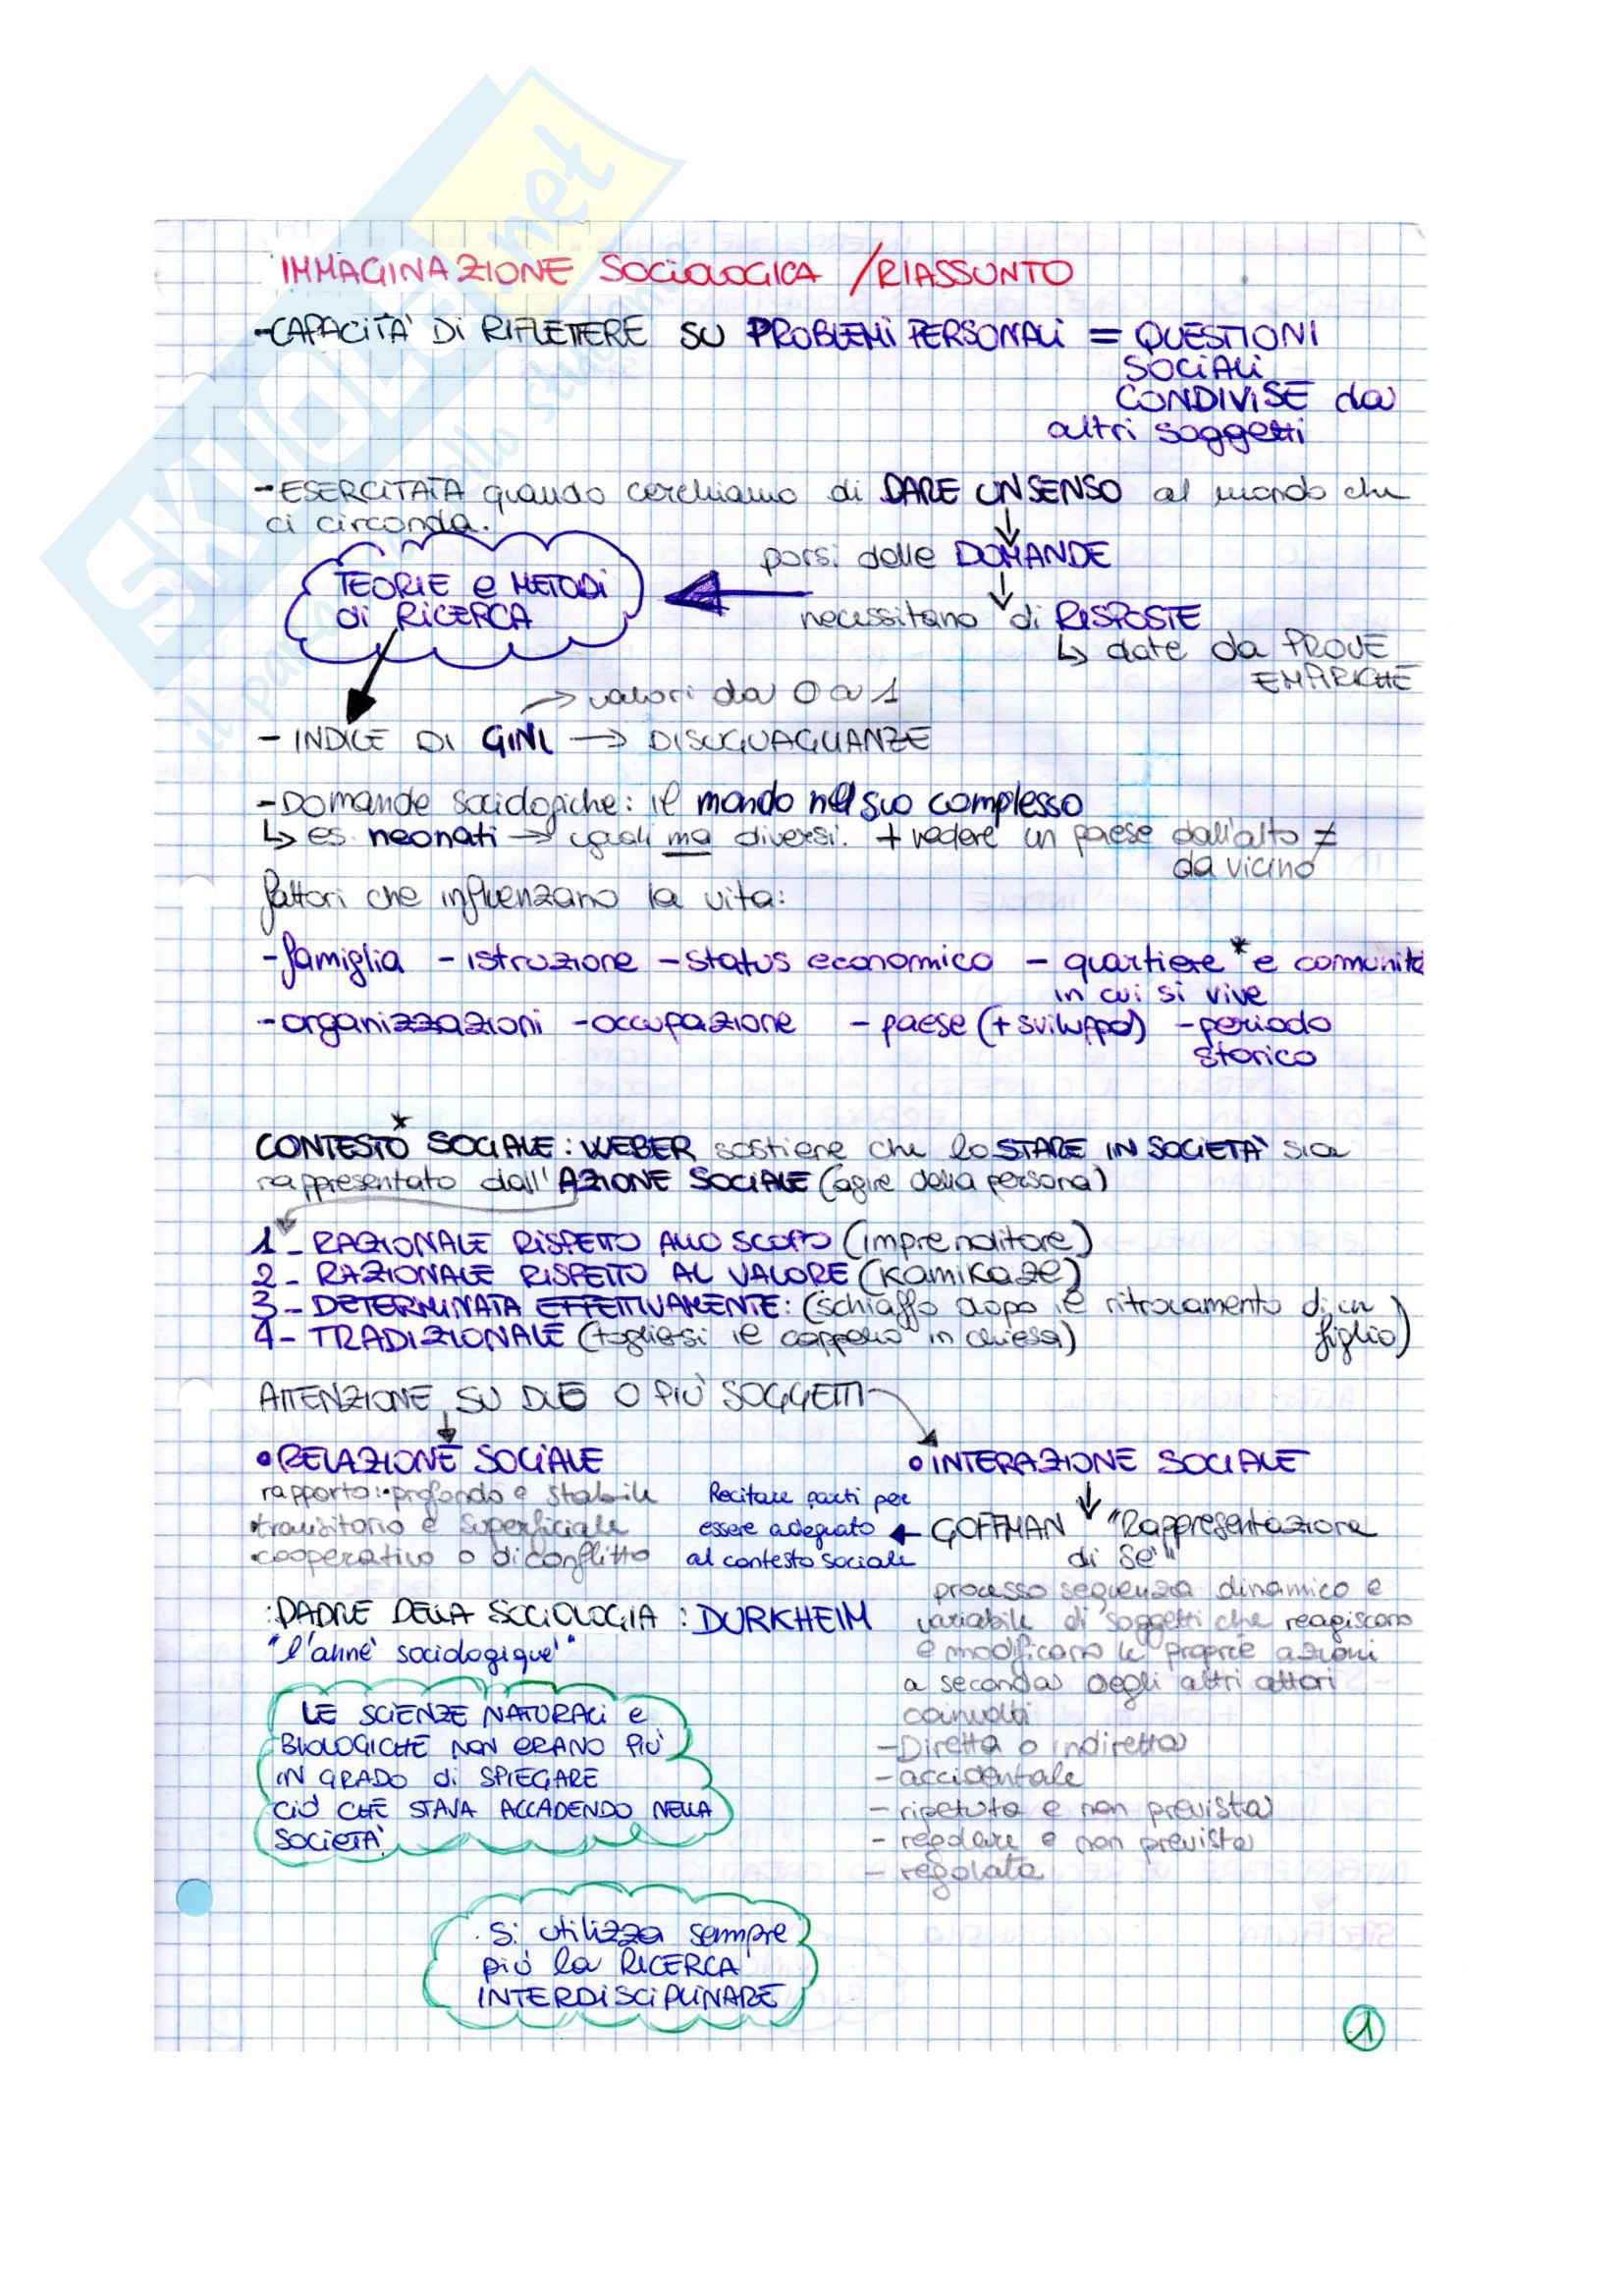 IMMAGINAZIONE SOCIOLOGICA / RIASSUNTO
- CAPACITA' DI RIFLETTERE SU PROBLEMI PERSONALI = QUESTIONI
SOCIALI
CONDIVISE da
altri soggetti
- ESERCITATA quando cerchiamo di DARE UN SENSO al mondo che
ci circonda.
porsi delle DOMANDE
TEORIE e METODI
di RICERCA
necessitano di RISPOSTE
↳ date da PROVE
EMPIRICHE
→ valori da 0 a 1
- INDICE DI GINI → DISUGUAGLIANZE
- Domande sociologiche: il mondo nel suo complesso
↳ es. neonati → uguali ma diversi. + vedere un paese dall'alto ≠
da vicino
fattori che influenzano la vita:
- famiglia - istruzione - status economico - quartiere * e comunità
in cui si vive
- organizzazioni - occupazione - paese (+ sviluppo) - periodo
storico
*
CONTESTO SOCIALE: WEBER sostiene che lo STARE IN SOCIETA' sia
rappresentato dall'AZIONE SOCIALE (agire della persona)
1 - RAZIONALE RISPETTO ALLO SCOPO (imprenditore)
2 - RAZIONALE RISPETTO AL VALORE (kamikaze)
3 - DETERMINATA EFFETTIVAMENTE: (schiaffo dopo il ritrovamento di un
figlio)
4 - TRADIZIONALE (togliersi il cappello in chiesa)
ATTENZIONE SU DUE O PIU' SOGGETTI
• RELAZIONE SOCIALE
rapporto: • profondo e stabile
• transitorio e superficiale
• cooperativo o di conflitto
• INTERAZIONE SOCIALE
GOFFMAN "Rappresentazione
di sé"
Recitare parti per
essere adeguato
al contesto sociale
processo sequenza dinamico e
variabile di soggetti che reagiscono
e modificano le proprie azioni
a seconda degli altri attori
coinvolti
- Diretta o indiretta
- accidentale
- ripetuta e non prevista
- regolare e non prevista
- regolata
: PADRE DELLA SOCIOLOGIA : DURKHEIM
"l'anné sociologique"
LE SCIENZE NATURALI e
BIOLOGICHE NON ERANO PIU'
IN GRADO di SPIEGARE
CIÒ CHE STAVA ACCADENDO NELLA
SOCIETA'.
. Si utilizza sempre
più la RICERCA
INTERDISCIPLINARE
1
SKUOLA.net